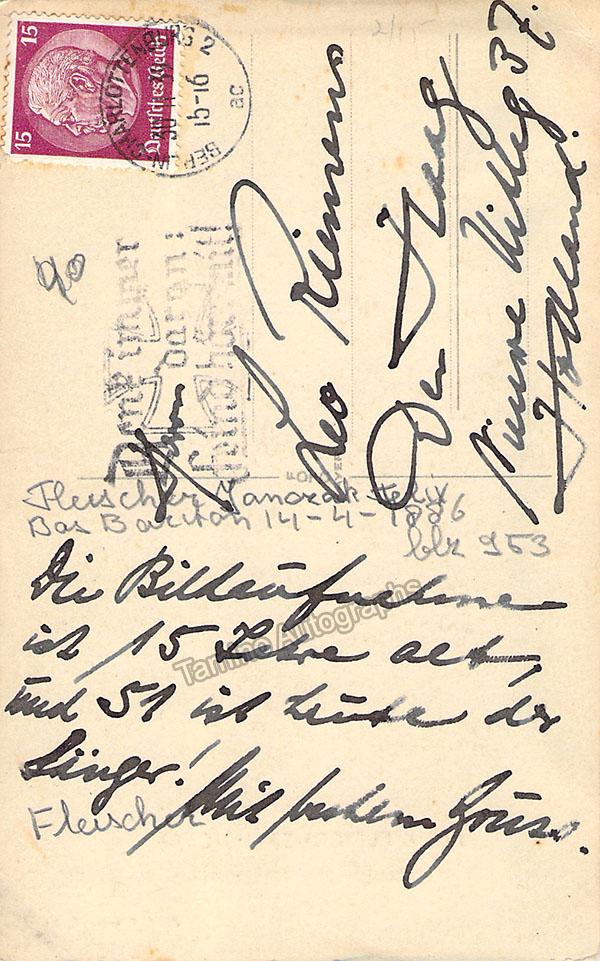 15
15
Deutsches Reich
BERLIN-CHARLOTTENBURG 2
15-16
ac
2/15
90
Denk immer
daran:
Herrn
Leo Riemens
Den Haag
37.
Holland.
Fleischer Janozak Felix
Bas Bariton 14-4-1886
blz 953
Die Bildaufnahme
ist 15 Jahre alt,
und 51 ist heute der
Sänger!
Mit frohem Gruss.
Fleischer
Tamino Autographs